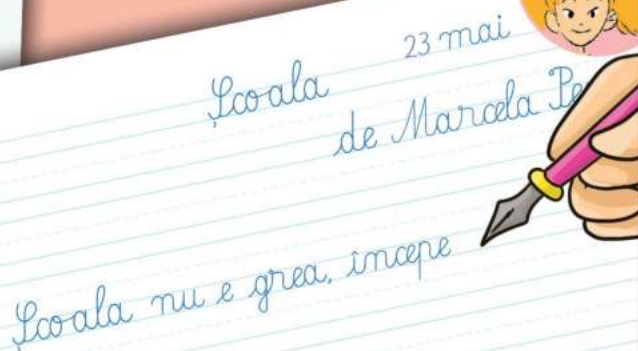 23 mai
Școala
de Marcela Pe
Școala nu e grea, începe